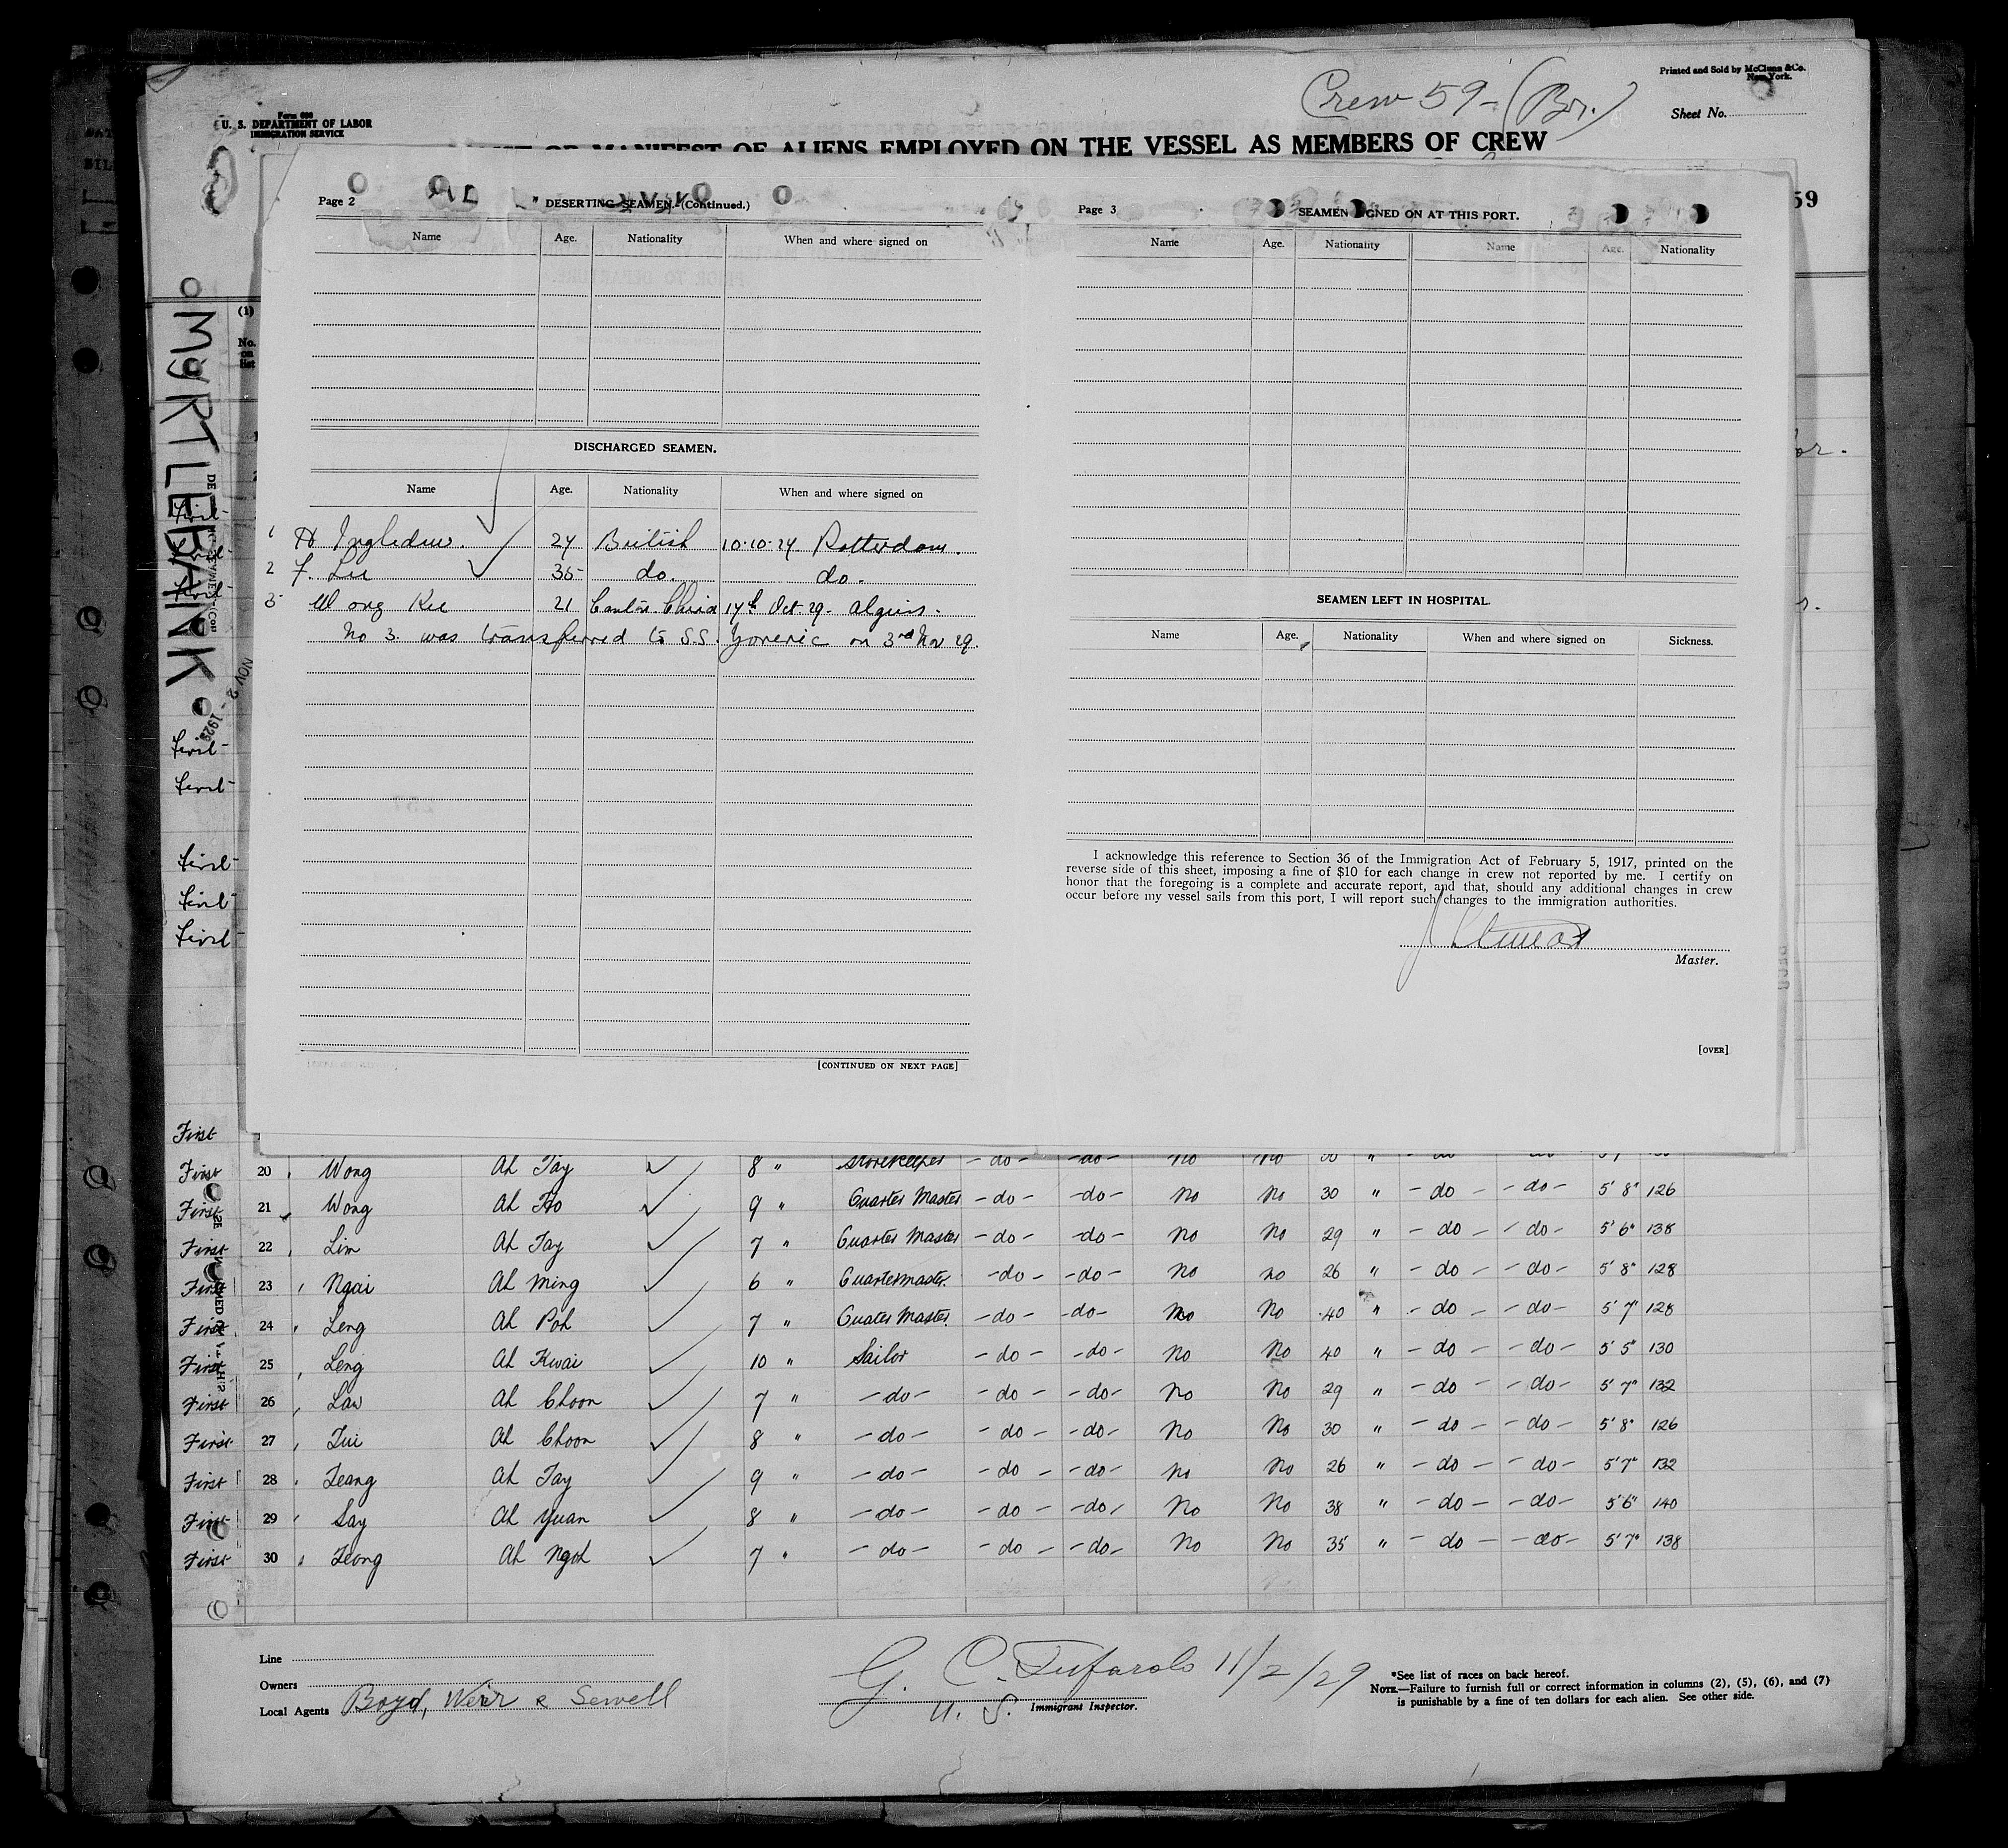 Crew 59 - (Br.)
Printed and Sold by McClunn & Co.
New York.
Form 680
U. S. DEPARTMENT OF LABOR
IMMIGRATION SERVICE
Sheet No.
MANIFEST OF ALIENS EMPLOYED ON THE VESSEL AS MEMBERS OF CREW
59
(1)
No. on list
MYRTLEBANK
NOV 2 - 1929
Page 2
DESERTING SEAMEN.-(Continued.)
Name Age. Nationality When and where signed on
DISCHARGED SEAMEN.
Name Age. Nationality When and where signed on
1 H Ingledew. 24 British 10.10.29 Rotterdam.
2 F. Lee 35 do. do.
3 Wong Kee 21 Canton China 14th Oct 29. Algiers.
No 3. was transferred to S.S. Yoneric on 3rd Nov 29.
[CONTINUED ON NEXT PAGE]
Page 3
SEAMEN SIGNED ON AT THIS PORT.
Name Age. Nationality Name Age. Nationality
SEAMEN LEFT IN HOSPITAL.
Name Age. Nationality When and where signed on Sickness.
I acknowledge this reference to Section 36 of the Immigration Act of February 5, 1917, printed on the
reverse side of this sheet, imposing a fine of $10 for each change in crew not reported by me. I certify on
honor that the foregoing is a complete and accurate report, and that, should any additional changes in crew
occur before my vessel sails from this port, I will report such changes to the immigration authorities.
Master.
[OVER]
First
First
First
First
First
First
First
First
First
First 20 Wong Ah Tay 8 " Storekeeper - do - - do - No No 30 " - do - do
First 21 Wong Ah Ho 9 " Quarter Master - do - - do - No No 30 " - do - - do - 5' 8" 126
First 22 Lim Ah Tay 7 " Quarter Master - do - - do - No No 29 " - do - - do - 5' 6" 138
First 23 Ngai Ah Ming 6 " Quartermaster. - do - - do - No No 26 " - do - - do - 5' 8" 128
First 24 Leng Ah Poh 7 " Quater Master. - do - - do - No No 40 " - do - - do - 5' 7" 128
First 25 Leng Ah Kwai 10 " Sailor - do - - do - No No 40 " - do - - do - 5' 5" 130
First 26 Law Ah Choon 7 " - do - - do - - do - No No 29 " - do - - do - 5' 7" 132
First 27 Lui Ah Choon 8 " - do - - do - - do - No No 30 " - do - - do - 5' 8" 126
First 28 Teang Ah Tay 9 " - do - - do - - do - No No 26 " - do - - do - 5' 7" 132
First 29 Say Ah Yuan 8 " - do - - do - - do - No No 38 " - do - - do - 5' 6" 140
First 30 Teong Ah Ngoh 7 " - do - - do - - do - No No 35 " - do - - do - 5' 7" 138
Line
Owners
Local Agents Boyd, Weir & Sewell
G. C. Tufarolo 11/2/29
U. S. Immigrant Inspector.
*See list of races on back hereof.
NOTE.—Failure to furnish full or correct information in columns (2), (5), (6), and (7)
is punishable by a fine of ten dollars for each alien. See other side.